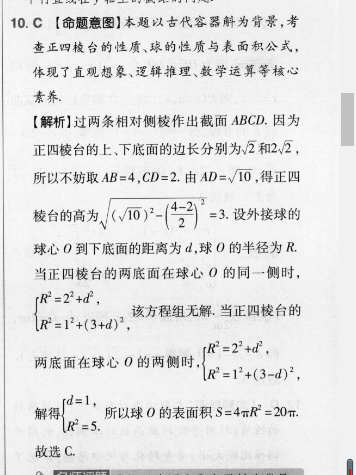 10. C 【命题意图】本题以古代容器斛为背景,考
查正四棱台的性质、球的性质与表面积公式,
体现了直观想象、逻辑推理、数学运算等核心
素养.
【解析】过两条相对侧棱作出截面 ABCD. 因为
正四棱台的上、下底面的边长分别为√2 和2√2,
所以不妨取 AB=4,CD=2. 由 AD=√10,得正四
棱台的高为√((√10)²-((4-2)/2)²)=3. 设外接球的
球心 O 到下底面的距离为 d,球 O 的半径为 R.
当正四棱台的两底面在球心 O 的同一侧时,
{R²=2²+d², R²=1²+(3+d)², 该方程组无解. 当正四棱台的
两底面在球心 O 的两侧时,{R²=2²+d², R²=1²+(3-d)²,
解得{d=1, R²=5. 所以球 O 的表面积 S=4πR²=20π.
故选 C.